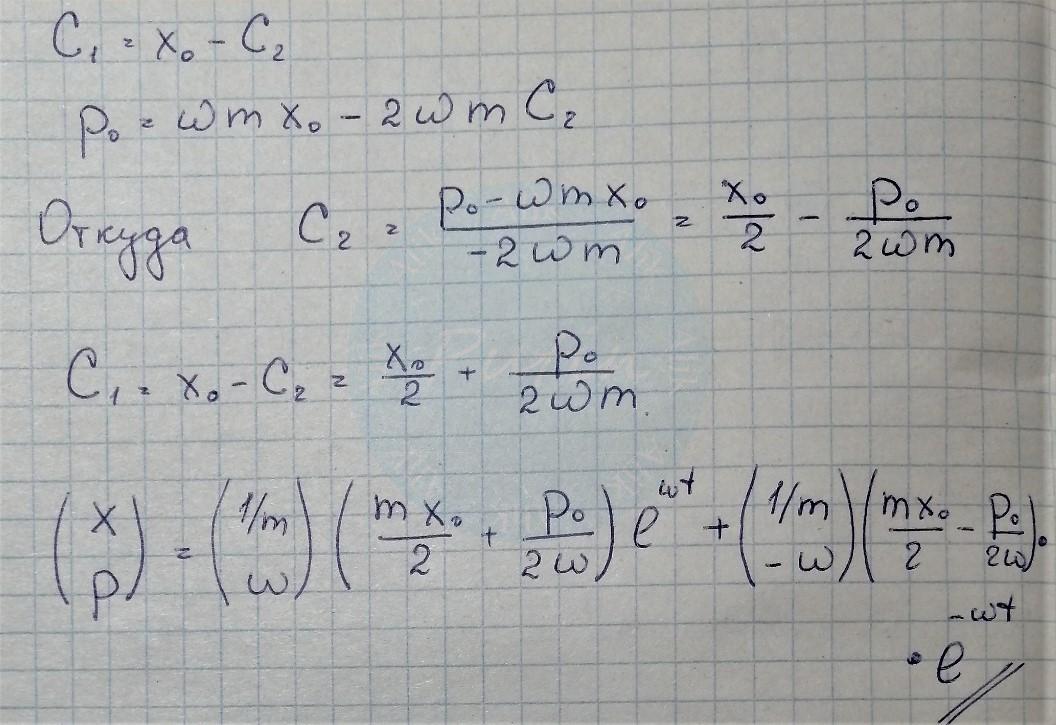 C₁ = x₀ - C₂
p₀ = ωm x₀ - 2ωm C₂
Откуда C₂ = (p₀ - ωm x₀)/(-2ωm) = x₀/2 - p₀/(2ωm)
C₁ = x₀ - C₂ = x₀/2 + p₀/(2ωm).
(x p) = (1/m ω) (m x₀/2 + p₀/(2ω)) e^(ωt) + (1/m -ω) (m x₀/2 - p₀/(2ω)) ·
· e^(-ωt)